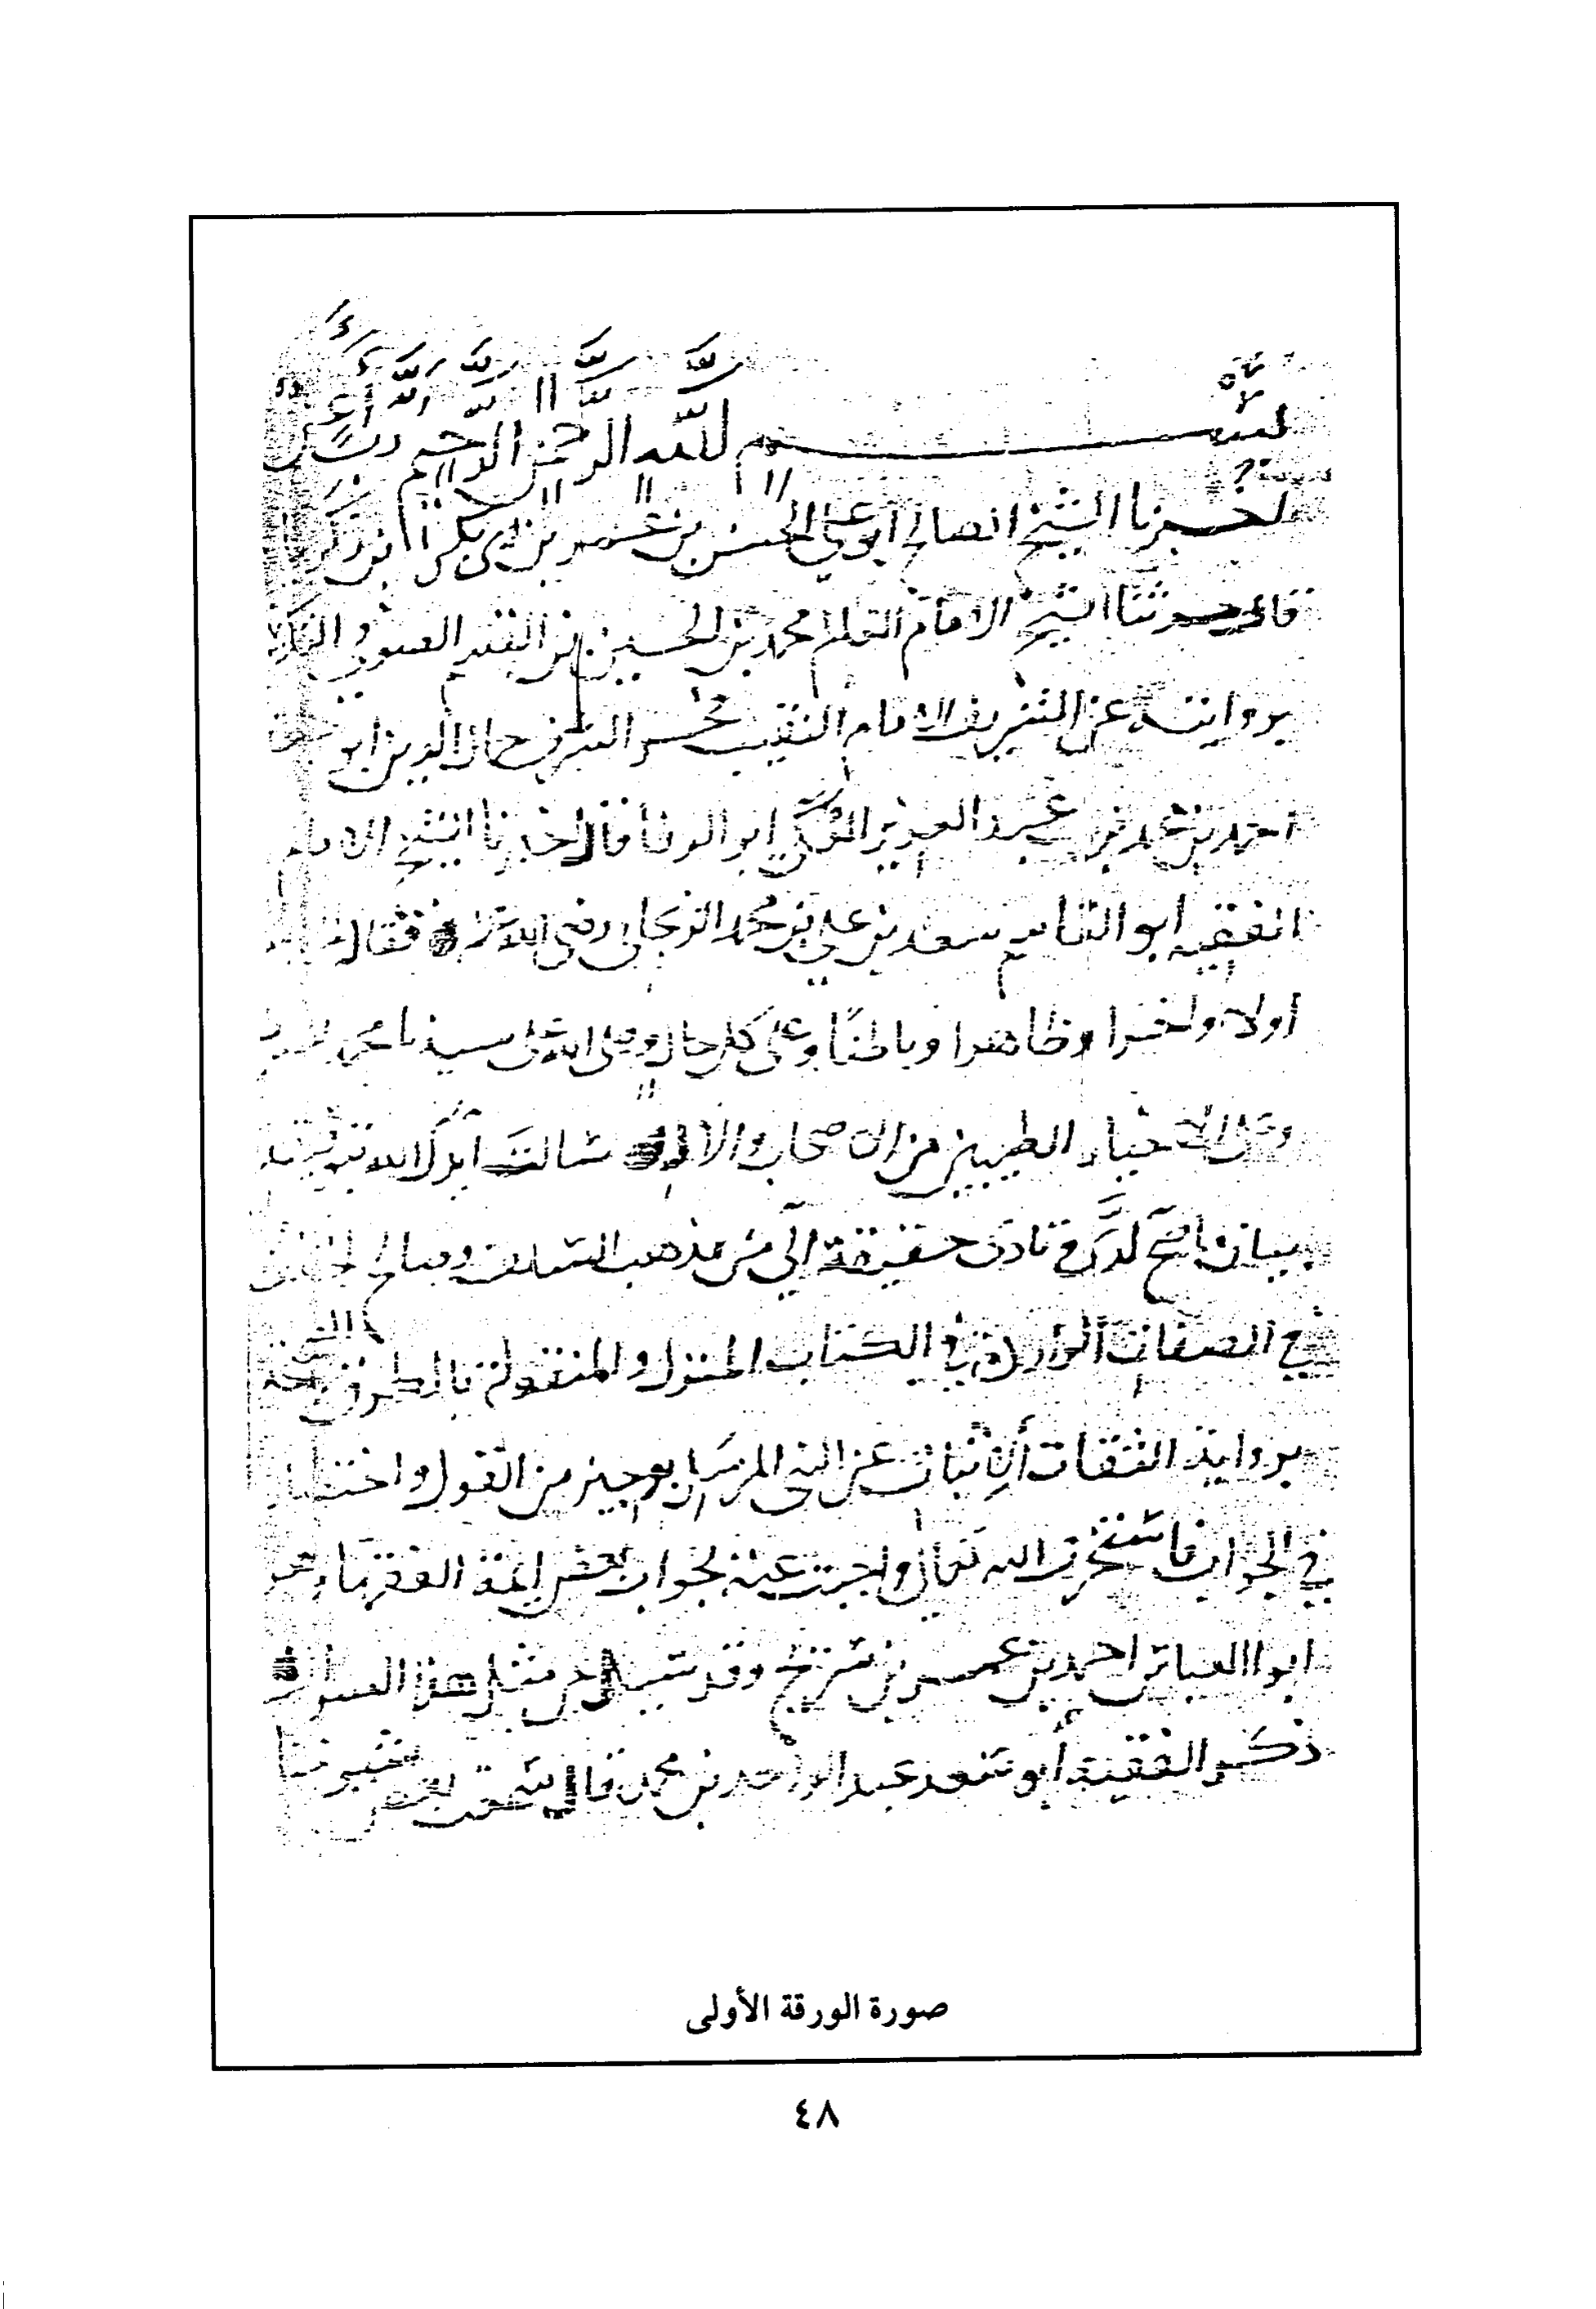 بسم الله الرحمن الرحيم رب أعن
أخبرنا الشيخ الصالح أبو علي الحسن بن عمر بن أبي بكر
قال حدثنا الشيخ الامام العلم محمد بن الحسين بن القسم الصوفي
بروايته عن الشريف الامام النقيب فخر الشرف جمال الدين ابو
احمد بن محمد بن عبد العزيز المكي ابو الوفا قال اخبرنا الشيخ الامام
الفقيه ابو القاسم سعد بن علي بن محمد الزنجاني رضي الله عنه فقال
أولا واخرا وظاهرا وباطنًا وعلى كل حال وصلى الله على سيدنا محمد
وعلى الاخيار الطيبين من الاصحاب والآل سالت أيدك الله
بيان ما صح لدي وتادى حقيقته الي من مذهب السلف وصالح الخلف
في الصفات الواردة في الكتاب المنزل والمنقولة بالطرق الصحيحة
برواية الثقات الاثبات عن النبي المرسل بوجيز من القول واختصار
في الجواب فاستخرت الله تعالى واجبت عنه بجواب بعض ايمة الفقهاء وهو
ابو العباس احمد بن عمر بن سريج وقد سيل عن مثل هذا السوال
ذكر الفقيه أبو سعد عبد الواحد بن محمد قال سمعت بعض شيوخنا
صورة الورقة الأولى
٤٨